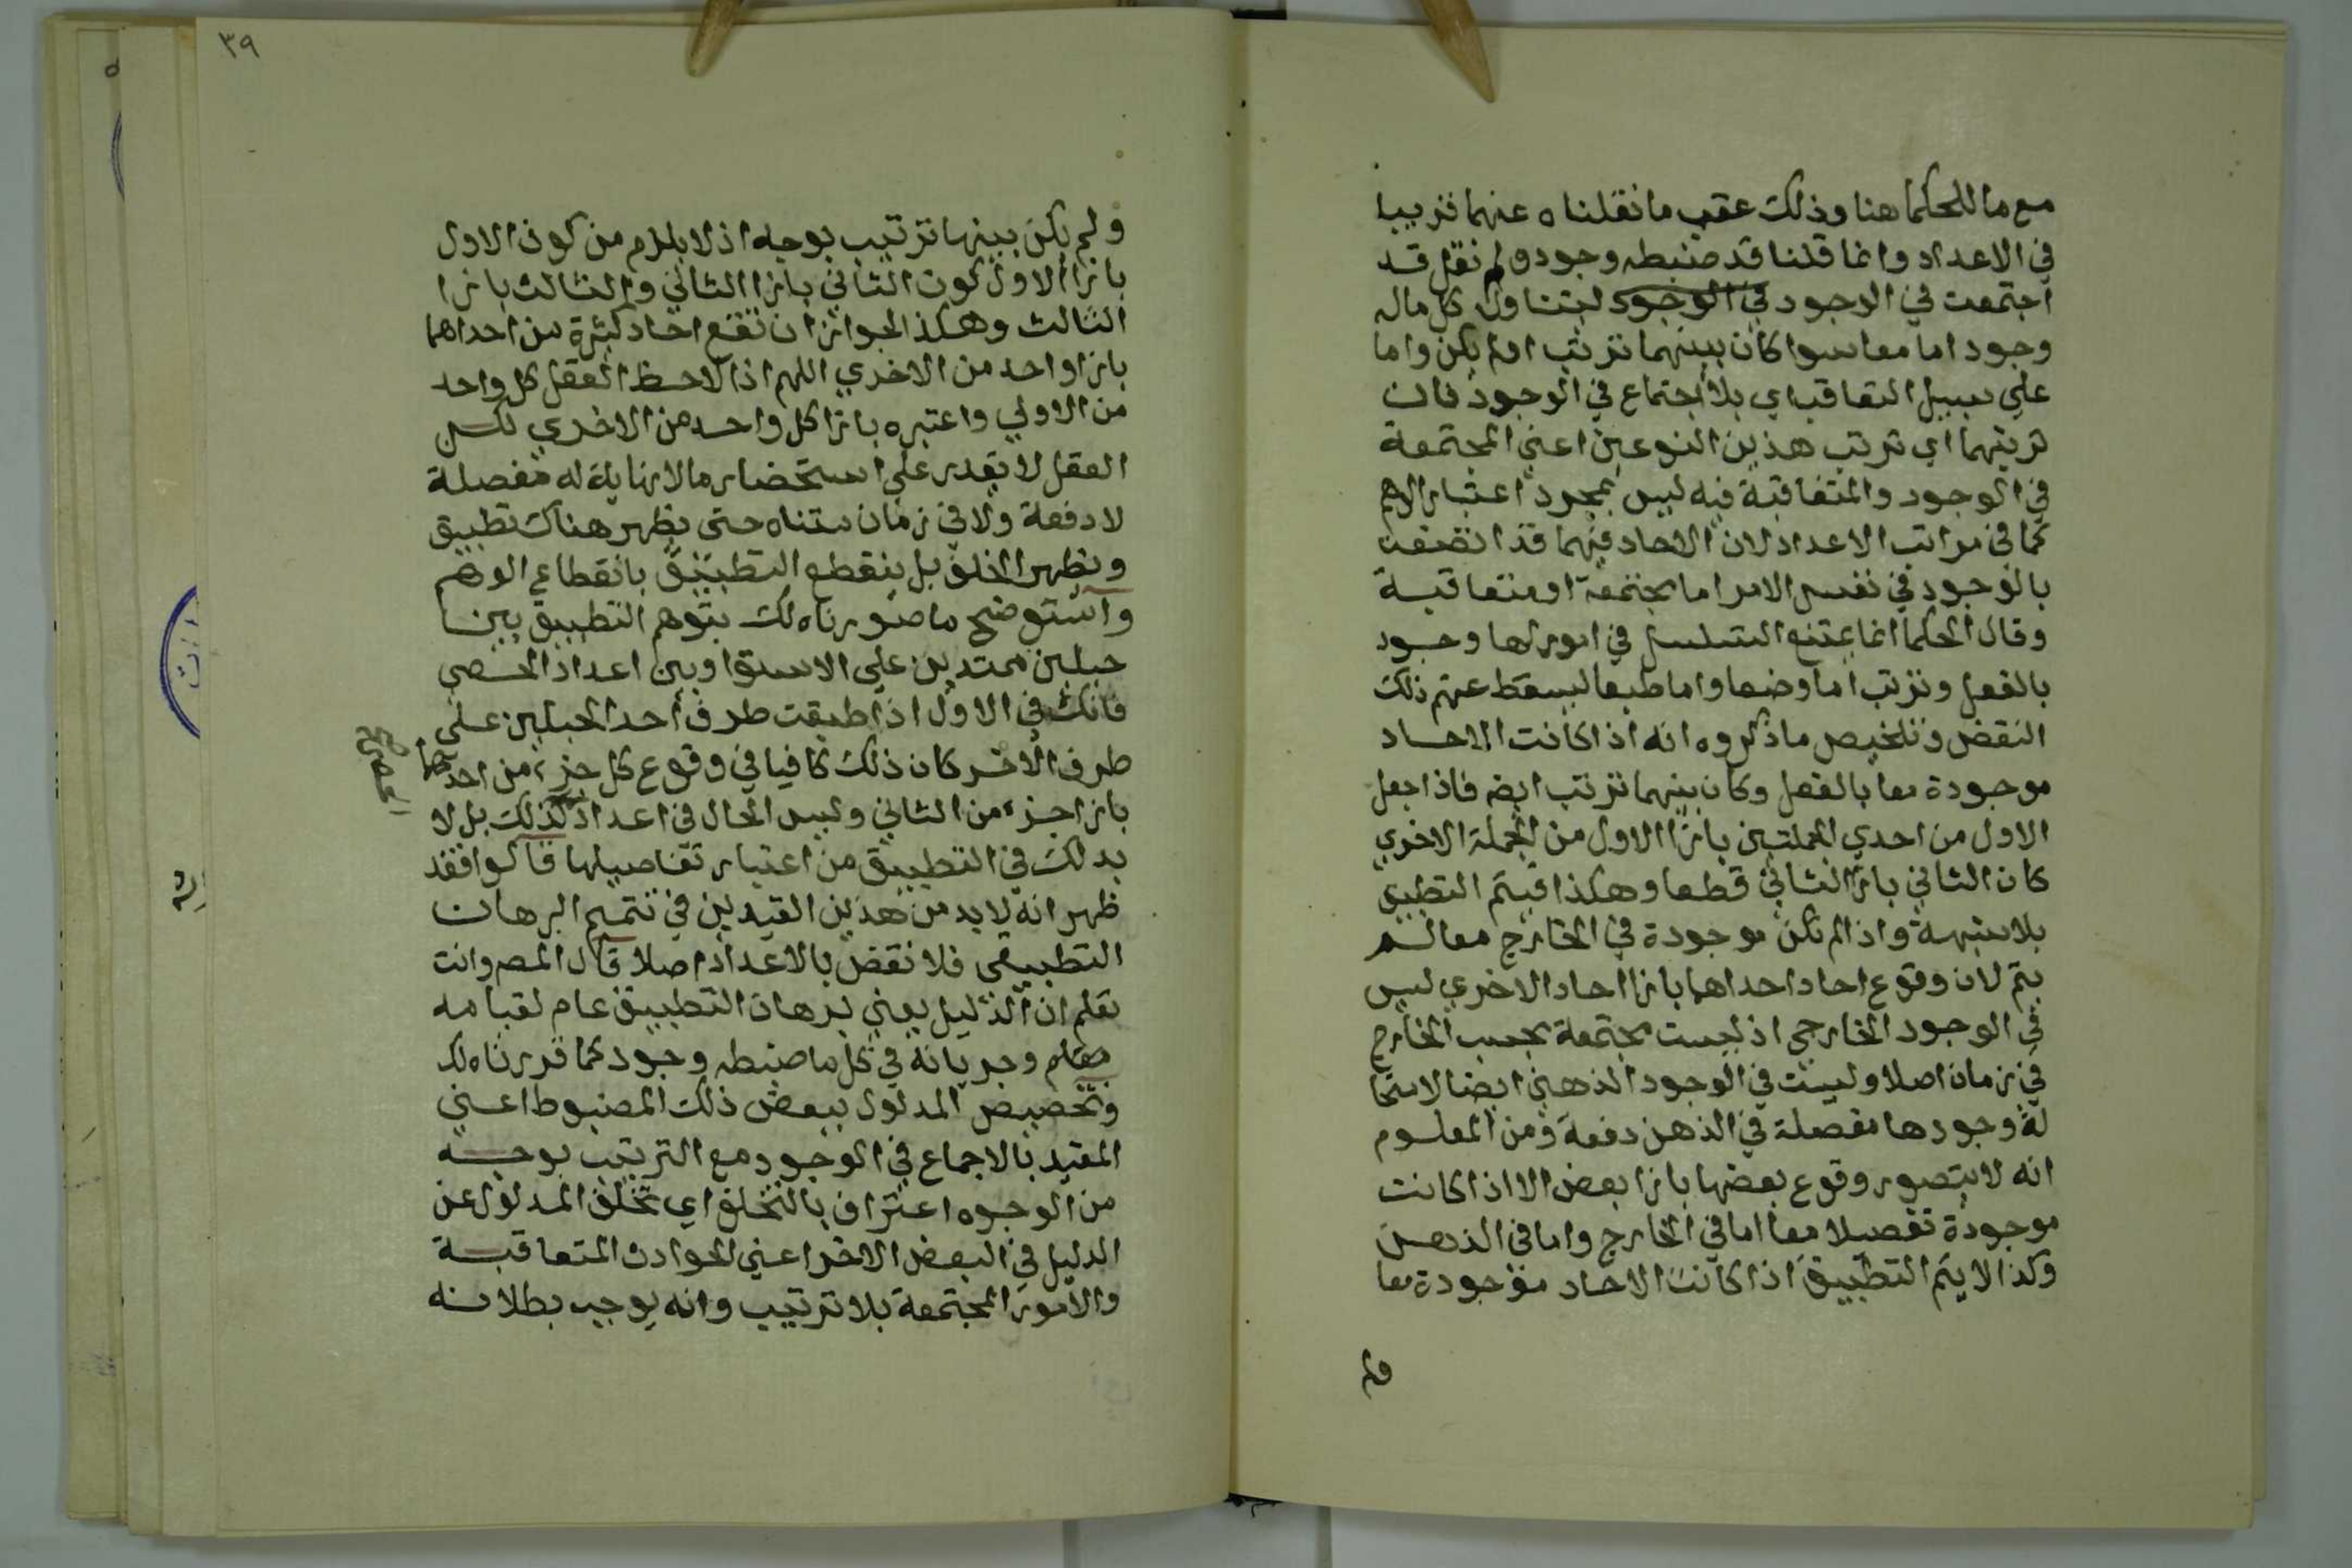 مع ما للحكما هنا وذلك عقب ما نقلناه عنهما قريبا
في الاعداد وانما قلنا قد ضبطه وجود ولم نقل قد
اجتمعت في الوجود في الوجود ليتناول كل ماله
وجود اما معا سوا كان بينهما ترتب اولم يكن واما
علي سبيل التعاقب اي بلا اجتماع في الوجود فان
ترتبهما اي ترتب هذين النوعين اعني المجتمعة
في الوجود والمتعاقبة فيه ليس بمجرد اعتبار الوهم
كما في مراتب الاعداد لان الاحاد فيهما قد اتصفت
بالوجود في نفس الامر اما مجتمعة او متعاقبة
وقال الحكما انما يمتنع التسلسل في امور لها وجود
بالفعل وترتب اما وضعا واما طبعا ليسقط عنهم ذلك
النقض وتلخيص ما ذكروه انه اذا كانت الاحاد
موجودة معا بالفعل وكان بينهما ترتب ايضه فاذا جعل
الاول من احدي الجملتين بازا الاول من الجملة الاخري
كان الثاني بازا الثاني قطعا وهكذا فيتم التطبيق
بلا شبهة واذا لم تكن موجودة في الخارج معا لم
يتم لان وقوع احاد احداهما بازا احاد الاخري ليس
في الوجود الخارجي اذ ليست مجتمعة بحسب الخارج
في زمان اصلا وليست في الوجود الذهني ايضا لاستحا
لة وجودها مفصلة في الذهن دفعة ومن المعلوم
انه لا يتصور وقوع بعضها بازا بعض الا اذا كانت
موجودة تفصيلا معا اما في الخارج واما في الذهن
وكذا لا يتم التطبيق اذا كانت الاحاد موجودة معا
ولم
٣٩
ولم يكن بينها ترتيب بوجه اذ لا يلزم من كون الاول
بازا الاول كون الثاني بازا الثاني والثالث بازا
الثالث وهكذا لجواز ان تقع احاد كثيرة من احداهما
بازا واحد من الاخري اللهم اذا لاحظ العقل كل واحد
من الاولي واعتبره بازا كل واحد من الاخري لكن
العقل لا يقدر علي استحضار ما لا نهاية له مفصلة
لا دفعة ولا في زمان متناه حتى يظهر هناك تطبيق
ويظهر الخلف بل ينقطع التطبيق بانقطاع الوهم
واستوضح ما صورناه لك بتوهم التطبيق بين
حبلين ممتدين علي الاستوا وبين اعداد الحصى
فانك في الاول اذا طبقت طرف احد الحبلين على
طرف الاخر كان ذلك كافيا في وقوع كل جزء من احدهما
بازا جزء من الثاني وليس الحال في اعداد كذلك بل لا
الحصي صح
بد لك في التطبيق من اعتبار تفاصيلها قالوا فقد
ظهر انه لا بد من هذين القيدين في تتميم البرهان
التطبيقي فلا نقض بالاعداد اصلا قال المصر وانت
تعلم ان الدليل يعني برهان التطبيق عام لقيامه
وجريانه في كل ما ضبطه وجود كما قررناه لك
وتخصيص المدلول ببعض ذلك المضبوط اعني
المقيد بالاجماع في الوجود مع الترتيب بوجه
من الوجوه اعتراف بالتخلف اي تخلف المدلول عن
الدليل في البعض الاخر اعني الحوادث المتعاقبة
والامور المجتمعة بلا ترتيب وانه يوجب بطلانه